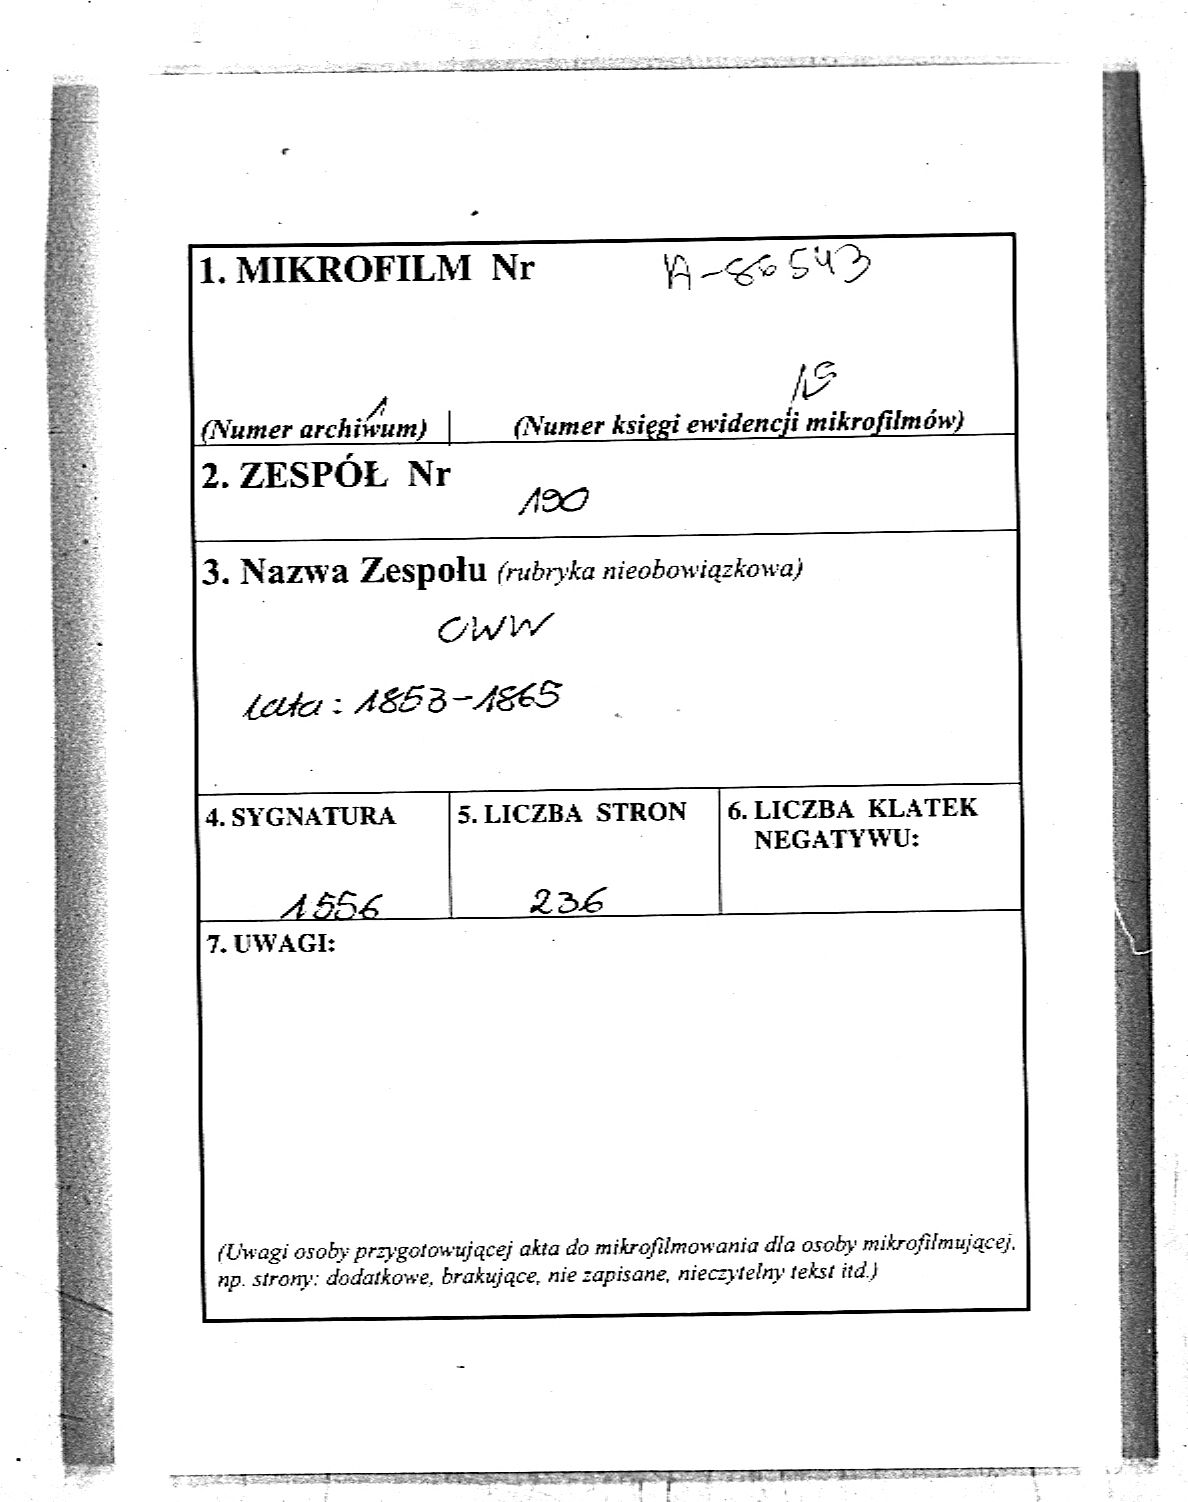 1. MIKROFILM Nr A-86543
1 15
(Numer archiwum) (Numer księgi ewidencji mikrofilmów)
2. ZESPÓŁ Nr
190
3. Nazwa Zespołu (rubryka nieobowiązkowa)
CWW
lata: 1853-1865
4. SYGNATURA 5. LICZBA STRON 6. LICZBA KLATEK
NEGATYWU:
1556 236
7. UWAGI:
(Uwagi osoby przygotowującej akta do mikrofilmowania dla osoby mikrofilmującej,
np. strony: dodatkowe, brakujące, nie zapisane, nieczytelny tekst itd.)